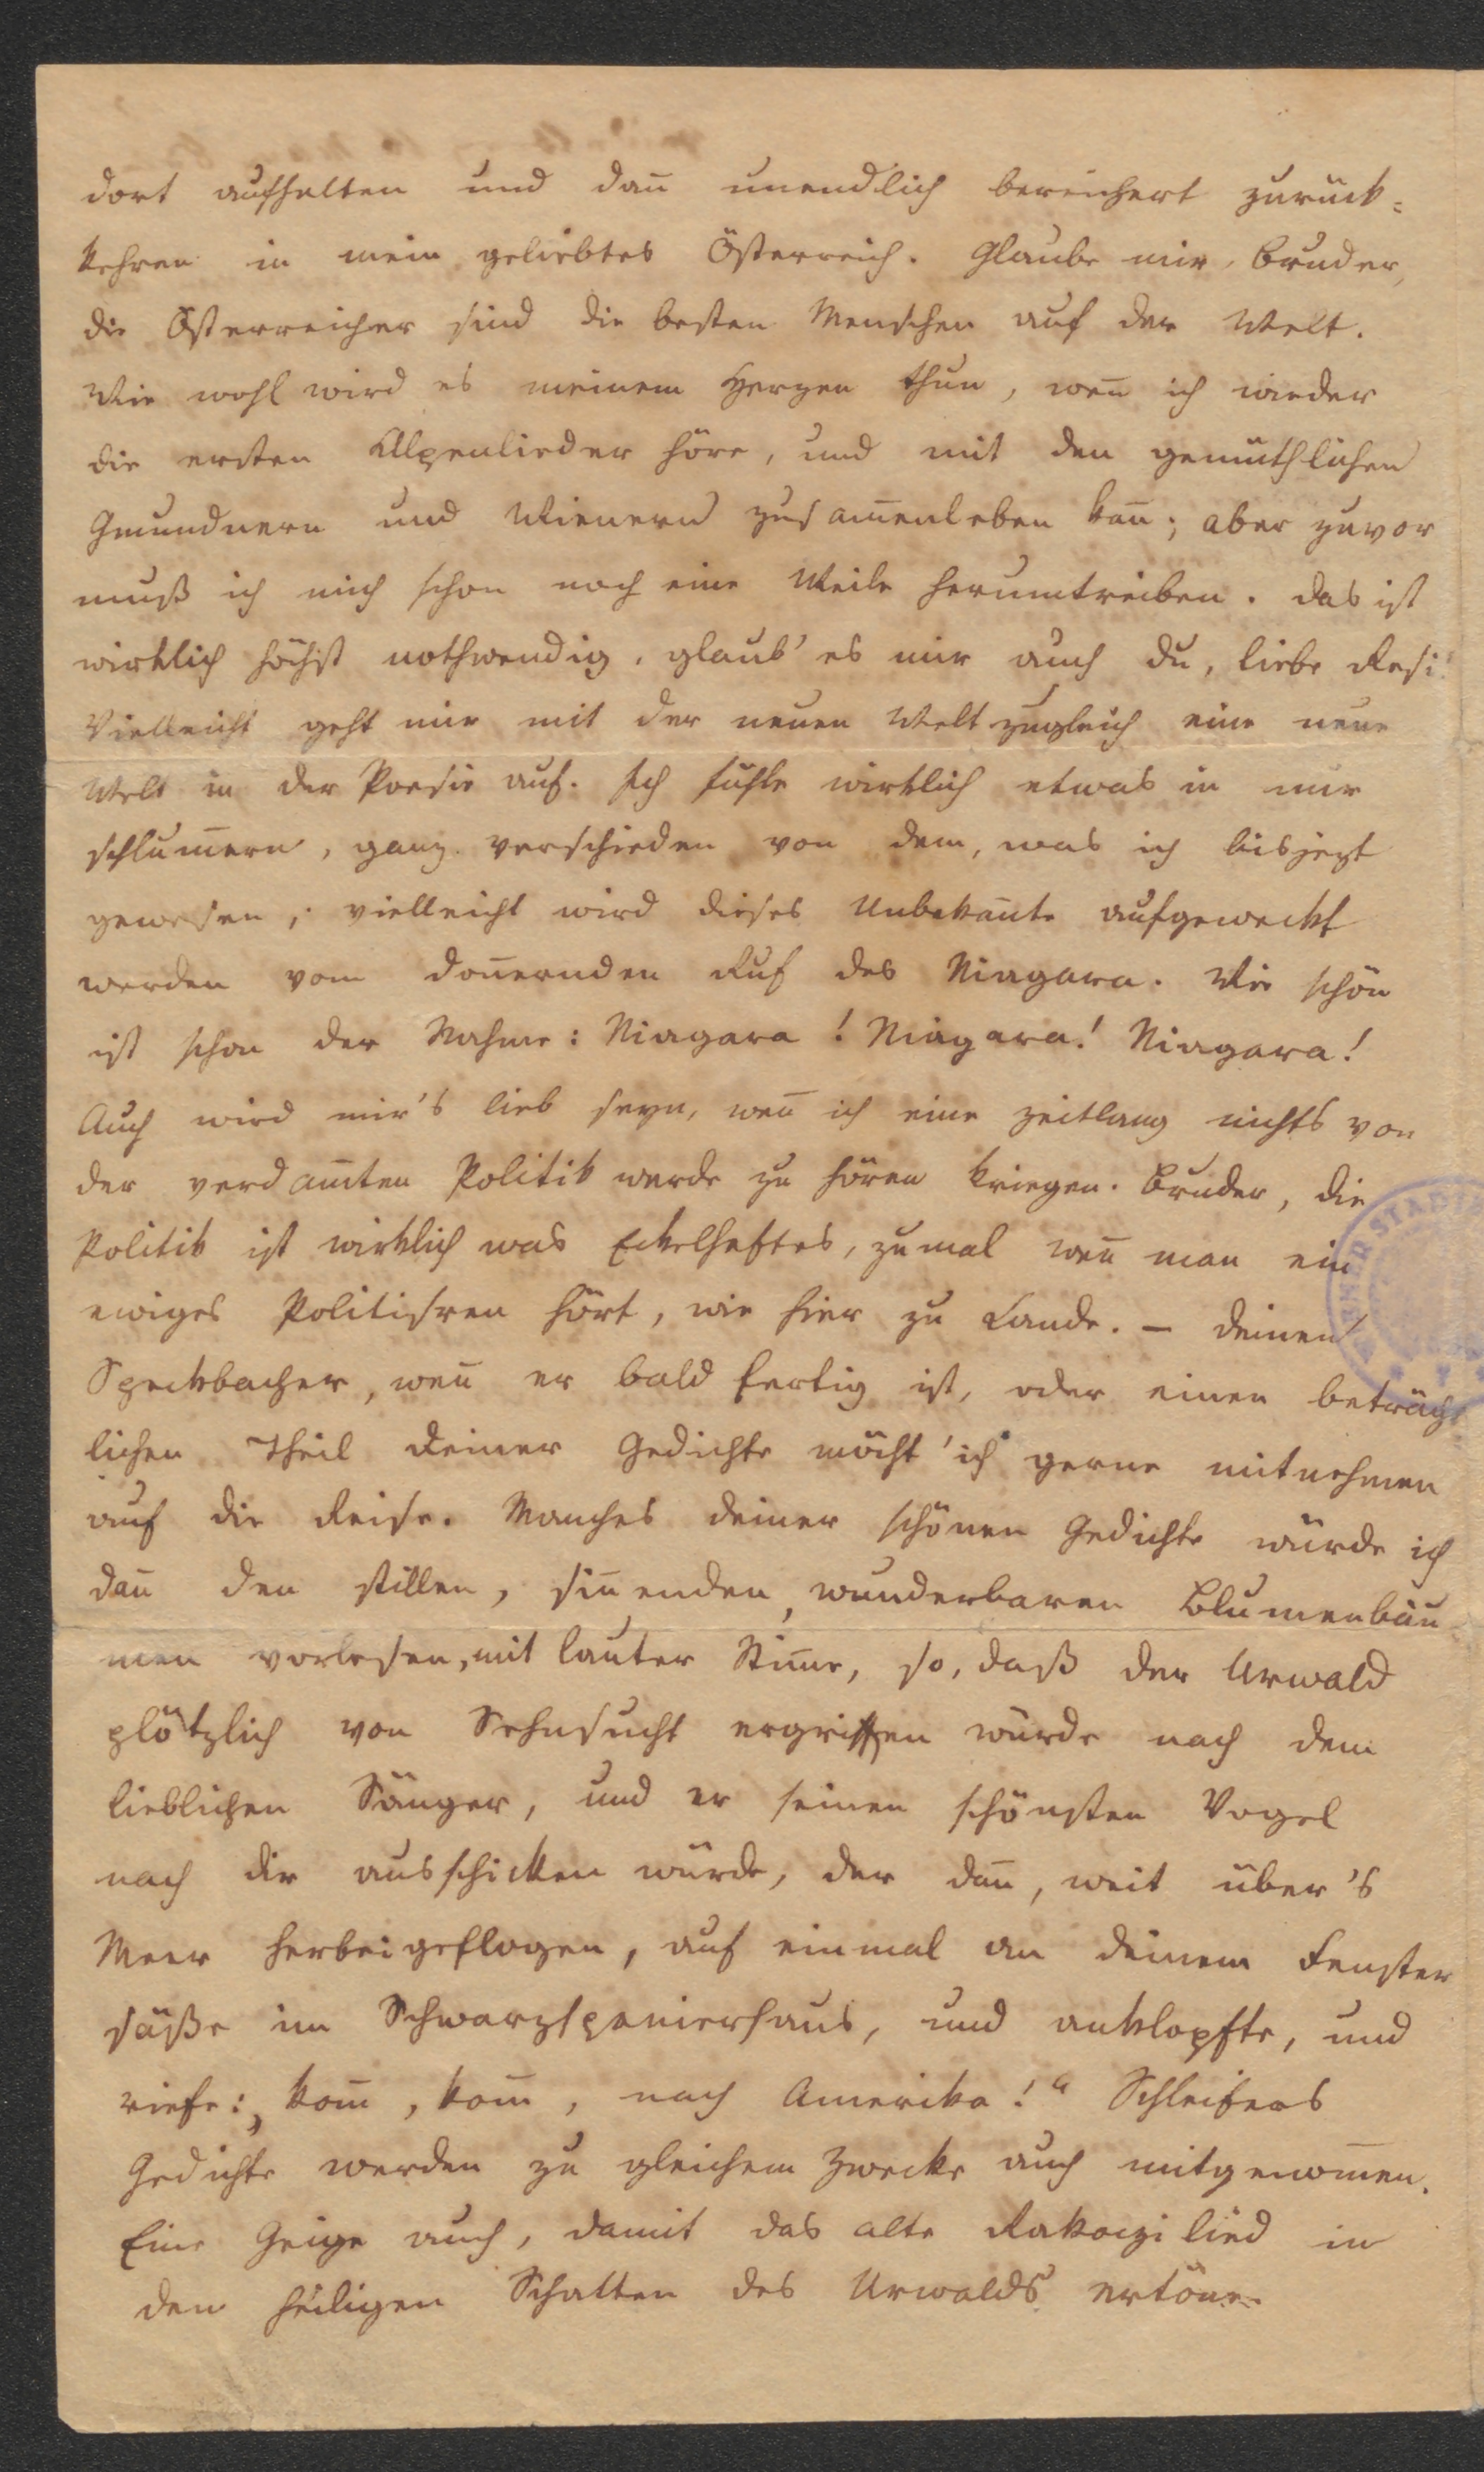 dort aufhalten und dan̄ unendlich bereichert zurück=
kehren in mein geliebtes Österreich. Glaube mir, Bruder,
die Österreicher sind die besten Menschen auf der Welt.
Wie wohl wird es meinem Herzen thun, wen̄ ich wieder
die ersten Alpenlieder höre, und mit den gemüthlichen
Gmundnern und Wienern zusam̄enleben kan̄; aber zuvor
muß ich mich schon noch eine Weile herumtreiben. Das ist
wirklich höchst nothwendig, glaub' es mir auch du, liebe Resi.
Vielleicht geht mir mit der neuen Welt zugleich eine neue
Welt in der Poesie auf. Ich fühle wirklich etwas in mir
schlum̄ern, ganz verschieden von dem, was ich bisjezt
gewesen; vielleicht wird dieses Unbekan̄te aufgeweckt
werden vom don̄ernden Ruf des Niagara. Wie schön
ist schon der Nahme: Niagara! Niagara! Niagara!
Auch wird mir's lieb seyn, wen̄ ich eine zeitlang nichts von
der verdam̄ten Politik werde zu hören kriegen. Bruder, die
Politik ist wirklich was Eckelhaftes, zumal wen̄ man ein
ewiges Politisiren hört, wie hier zu Lande. – Deinen
Speckbacher, wen̄ er bald fertig ist, oder einen beträcht
lichen Theil deiner Gedichte möcht' ich gerne mitnehmen
auf die Reise. Manches deiner schönen Gedichte würde ich
dan̄ den stillen, sin̄enden, wunderbaren Blumenbäu
men vorlesen, mit lauter Stim̄e, so, daß der Urwald
plötzlich von Sehnsucht ergriffen würde nach dem
lieblichen Sänger, und er seinen schönsten Vogel
nach dir ausschicken würde, der dan̄, weit über's
Meer herbeigeflogen, auf einmal an deinem Fenster
säße im Schwarzspanierhaus, und anklopfte, und
riefe: „kom̄, kom̄, nach Amerika!“ Schleifers
Gedichte werden zu gleichem Zwecke auch mitgenom̄en.
Eine Geige auch, damit das alte Rakoczilied in
den heiligen Schatten des Urwalds ertöne.